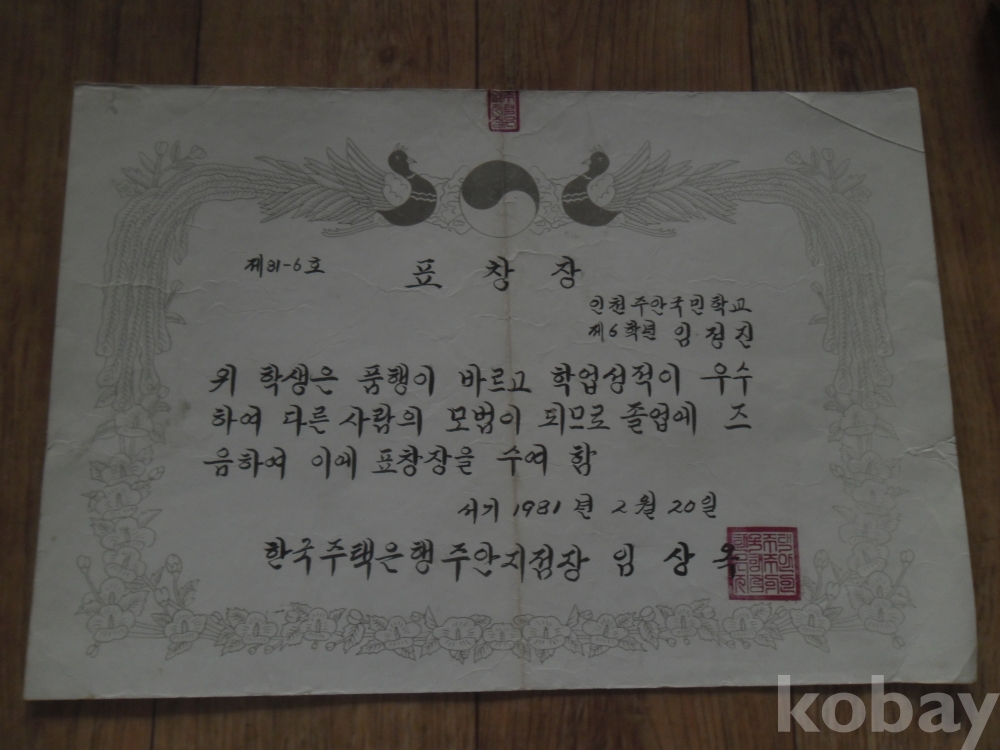 제81-6호
표창장
인천주안국민학교
제6학년 임정진
위 학생은 품행이 바르고 학업성적이 우수
하여 다른 사람의 모범이 되므로 졸업에 즈
음하여 이에 표창장을 수여 함
서기 1981년 2월 20일
한국주택은행주안지점장 임상옥
kobay